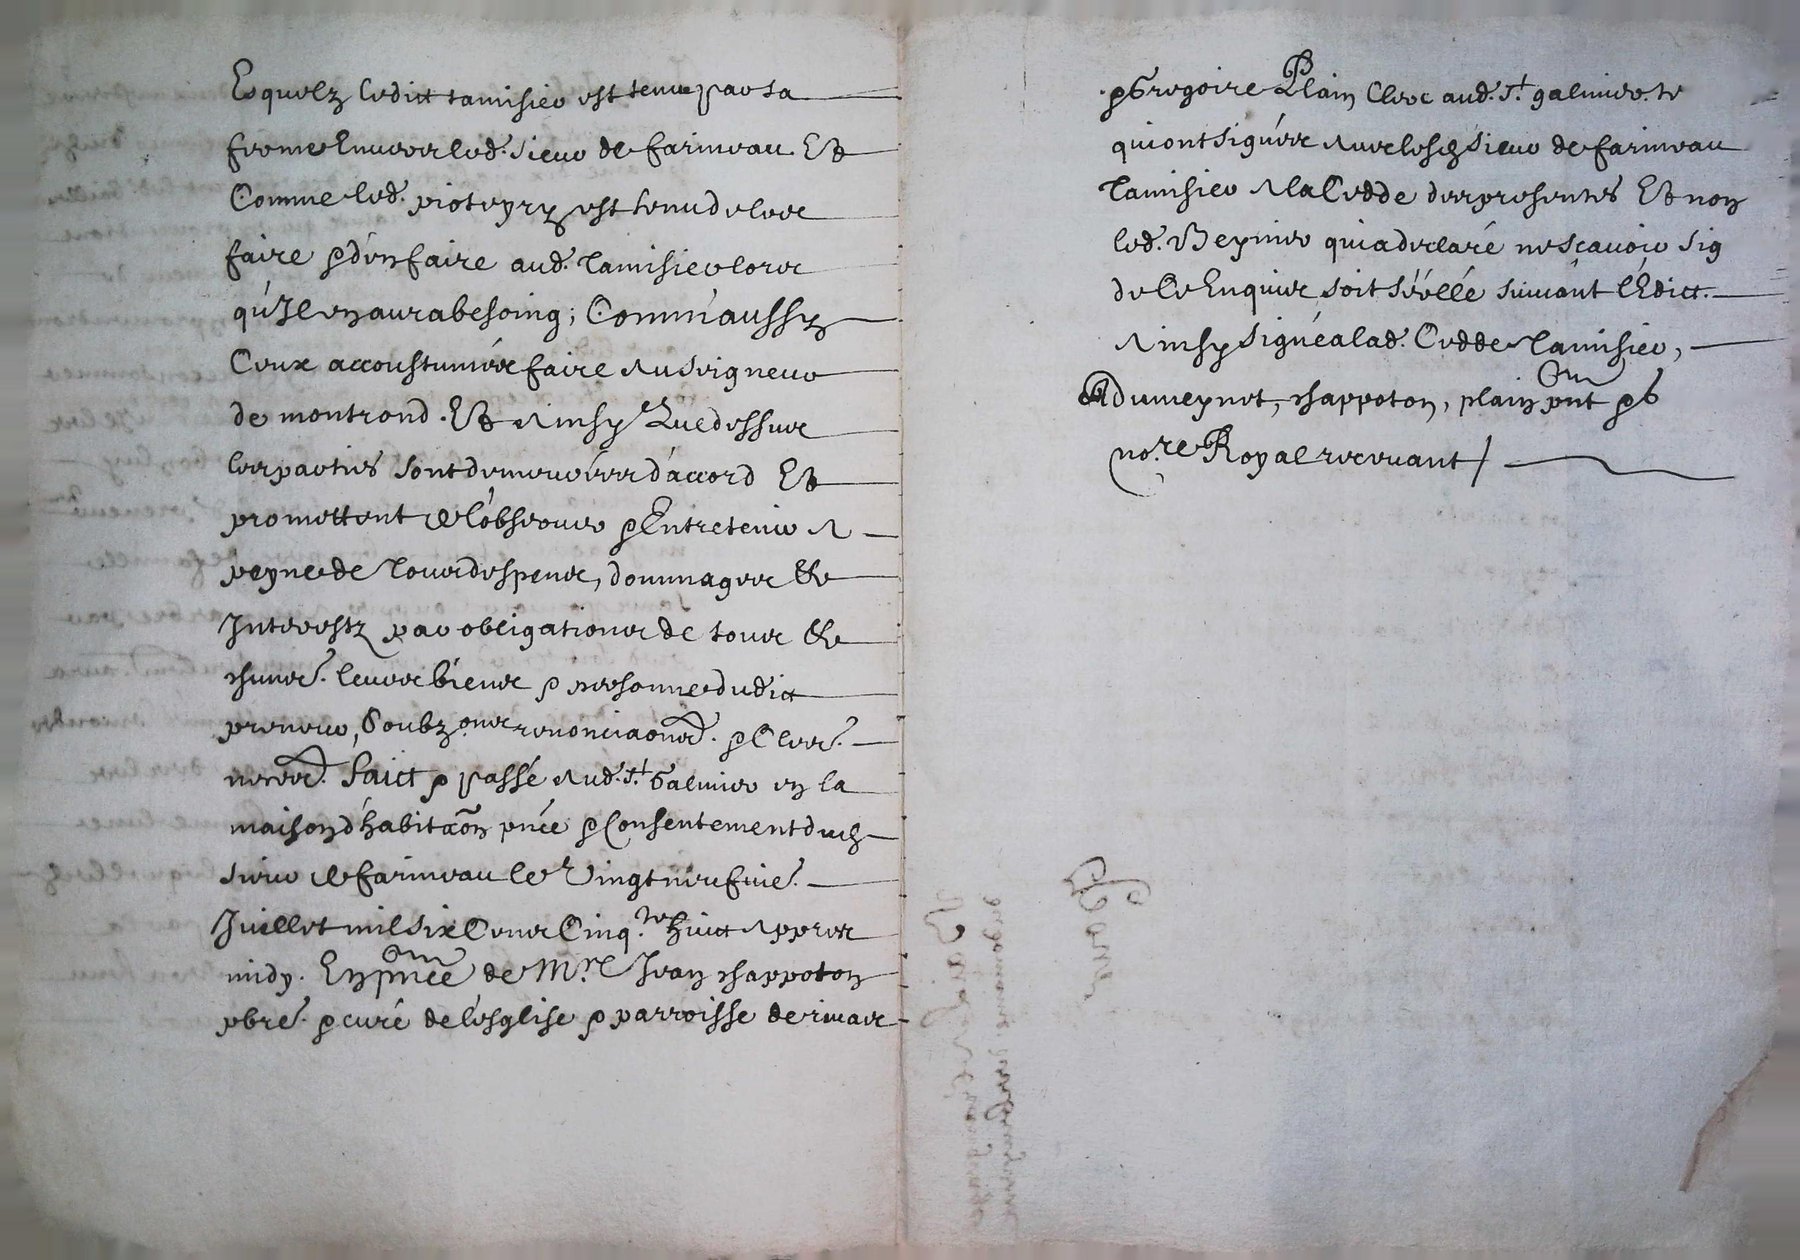 Esquelz ledict tamisier est tenu par sa
ferme Envers led. sieur de farmeau. Et
Comme led. pioteyry est tenu de les
faire & d'en faire aud. Tamisier lors
qu'Il en aura besoing; Comm'aussy
Ceux accoustumés faire au seigneur
de montrond. Et Ainsy Que dessus
les parties sont demeurées d'accord Et
promettent de l'observer & Entretenir A
peyne de Tous despens, dommages &
Interestz par obligations de tous &
chuns. leurs biens & personne dudict
preneur, Soubz ... renonciaons. & Cles.
neccres. Faict & passé Aud. St. Galmier en la
maison d'habitaon ... & Consentement dud
sieur de farmeau le Vingt neufvie.
Juillet mil six Cens Cinq.te huict Appres
midy. En pnce de Mre Jean chappoton
pbre. & curé de l'esglise & parroisse de rivas
& Gregoire Plain Clerc aud. St. galmier. te
qui ont signés Avec lesd sieur de farmeau
Tamisier A la Cedde des presentes Et non
led. Beynier qui a declaré ne scavoir sig
de ce Enquis soit séellé suivant l'Edict.
Ainsy signé a lad. Cedde Tamisier,
A dumeynet, chappoton, plain pnt &
no.re Royal recevant /